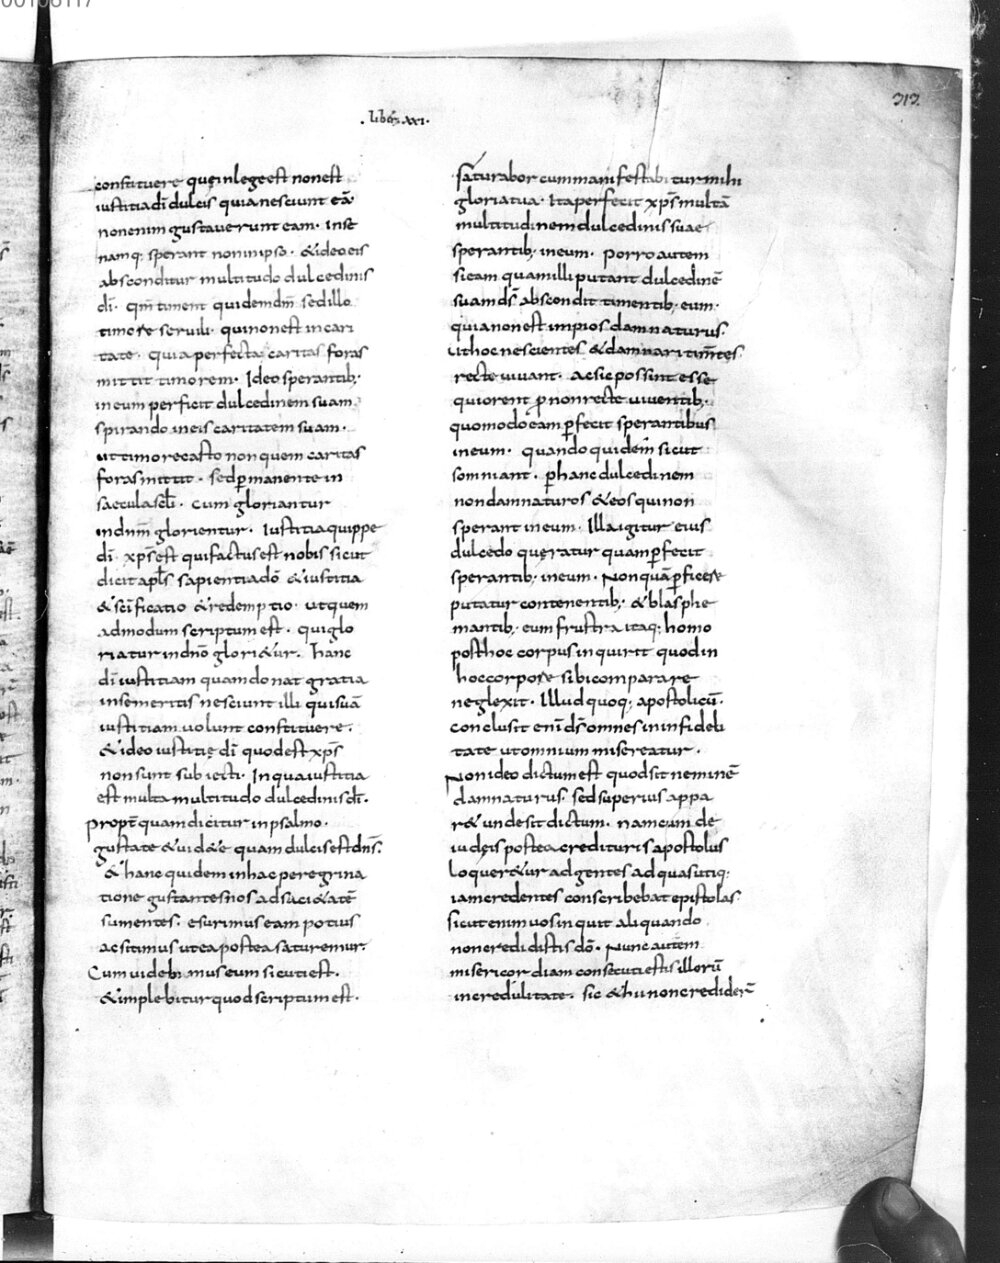 00106117
.liber.xxi.
313
constituere que inlege est non est
iustitia dī dulcis quia nesciunt eā
non enim gustauerunt eam. Inse
namq; sperant non inipso. & ideo eis
absconditur multitudo dulcedinis
dī. qm̄ timent quidem dm̄ sed illo
timore seruili. qui non est in cari
tate. quia perfecta caritas foras
mittit timorem. Ideo sperantib;
in eum perficit dulcedinem suam
spirando in eis caritatem suam.
ut timore casto non quem caritas
foras mittit. sed ꝑmanente in
saecula scl̄i. cum gloriantur
in dnm̄ glorientur. Iustitia quippe
dī xp̄s est qui factus est nobis sicut
dicit apl̄s sapientia a dō & iustitia
& sc̄ificatio & redemptio. ut quem
admodum scriptum est. qui glo
riatur in dnō glori&ur. hanc
dī iustitiam quam donat gratia
in se meritis nesciunt illi qui suā
iustitiam uolunt constituere.
& ideo iustitię dī quod est xp̄s
non sunt subiecti. In qua iustitia
est multa multitudo dulcedinis dī.
Propt̄ quam dicitur in psalmo.
gustate & uid&e quam dulcis est dn̄s.
& hanc quidem in hac peregrina
tione gustantes nos ad saci&atē
sumentes. esurimus eam potius
ac sitimus ut ea postea saturemur
Cum uidebimus eum sicuti est.
& implebitur quod scriptum est.
saturabor cum manifestabitur mihi
gloria tua. Ita perfecit xp̄s multā
multitudinem dulcedinis suae
sperantib; in eum. porro autem
si eam quam illi putant dulcedinē
suam dś abscondit timentib; eum.
quia non est impios damnaturus.
ut hoc nescientes & damnari tim̄tes
recte uiuant. ac sic possint esse
qui orent ꝓ non recte uiuentib;.
quomodo eam ꝑfecit sperantibus
in eum. quando quidem sicut
somniant. ꝑ hanc dulcedinem
non damnaturos & eos qui non
sperant in eum. Illa igitur eius
dulcedo queratur quam ꝑfecit
sperantib; in eum. Non quā ꝑficere
putatur contenentib; & blasphe
mantib; eum frustra itaq; homo
post hoc corpus inquirit quod in
hoc corpore sibi comparare
neglexit. Illud quoq; apostolicū.
conclusit enī dś omnes in infideli
tate ut omnium misereatur.
Non ideo dictum est quod sit neminē
damnaturus. sed superius appa
r& unde sit dictum. nam cum de
iudęis postea credituris apostolus
loquer&ur ad gentes ad quas utiq;
iam credentes conscribebat epistolas.
sicut enim uos inquit aliquando
non credidistis dō. Nunc autem
misericordiam consecuti estis illorū
incredulitate. sic & hi non crediderī